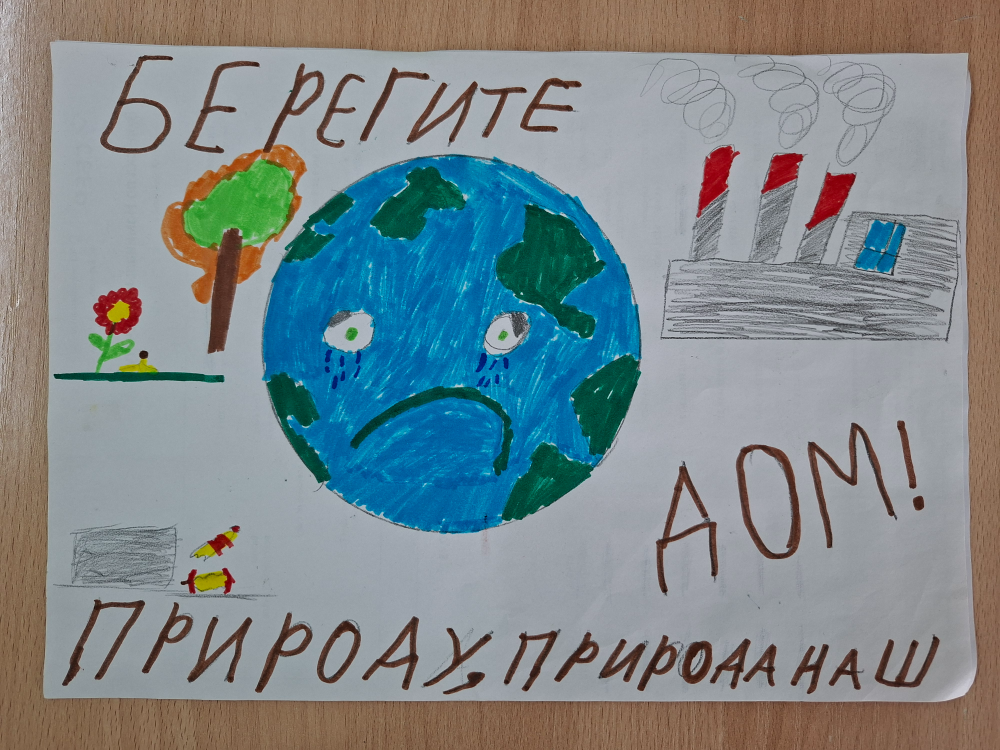 БЕРЕГИТЕ
ПРИРОДУ, ПРИРОДА НАШ
ДОМ!